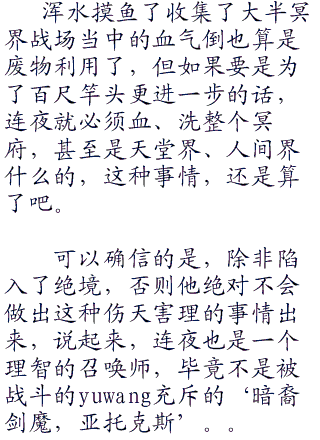 浑水摸鱼了收集了大半冥
界战场当中的血气倒也算是
废物利用了，但如果要是为
了百尺竿头更进一步的话，
连夜就必须血、洗整个冥
府，甚至是天堂界、人间界
什么的，这种事情，还是算
了吧。
可以确信的是，除非陷
入了绝境，否则他绝对不会
做出这种伤天害理的事情出
来，说起来，连夜也是一个
理智的召唤师，毕竟不是被
战斗的yuwang充斥的‘暗裔
剑魔，亚托克斯’。。